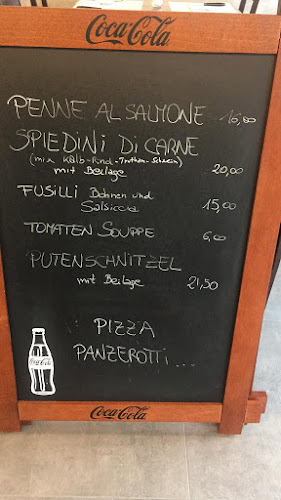 Coca-Cola
PENNE AL SALMONE 16,00
SPIEDINI DI CARNE
(mix Kalb-Rind-Truthan-Schwein)
mit Beilage 20,00
FUSILLI Bohnen und
Salsiccia 15,00
TOMATEN SOUPPE 6,00
PUTENSCHNITZEL
mit Beilage 21,50
PIZZA
PANZEROTTI...
Coca-Cola
Coca-Cola